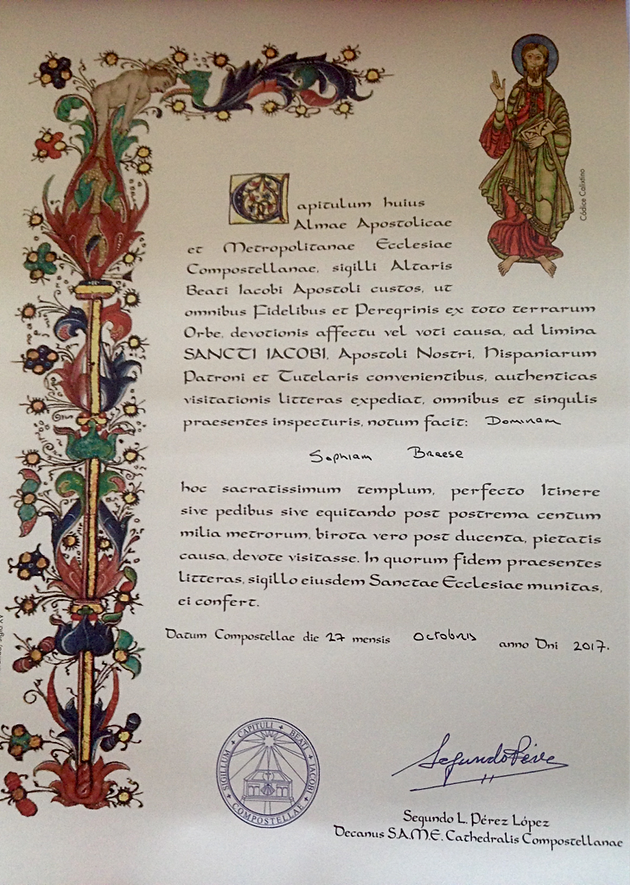 Códice Calixtino
Capitulum huius
Almae Apostolicae
et Metropolitanae Ecclesiae
Compostellanae, sigilli Altaris
Beati Iacobi Apostoli custos, ut
omnibus Fidelibus et Peregrinis ex toto terrarum
Orbe, devotionis affectu vel voti causa, ad limina
SANCTI IACOBI, Apostoli Nostri, Hispaniarum
Patroni et Tutelaris convenientibus, authenticas
visitationis litteras expediat, omnibus et singulis
praesentes inspecturis, notum facit: Dominam
Sophiam Braese
hoc sacratissimum templum, perfecto Itinere
sive pedibus sive equitando post postrema centum
milia metrorum, birota vero post ducenta, pietatis
causa, devote visitasse. In quorum fidem praesentes
litteras, sigillo eiusdem Sanctae Ecclesiae munitas,
ei confert.
Datum Compostellae die 27 mensis Octobris anno Dni 2017.
SIGILLUM CAPITULI BEATI IACOBI COMPOSTELLAE
Segundo Pérez
Segundo L. Pérez López
Decanus S.A.M.E. Cathedralis Compostellanae